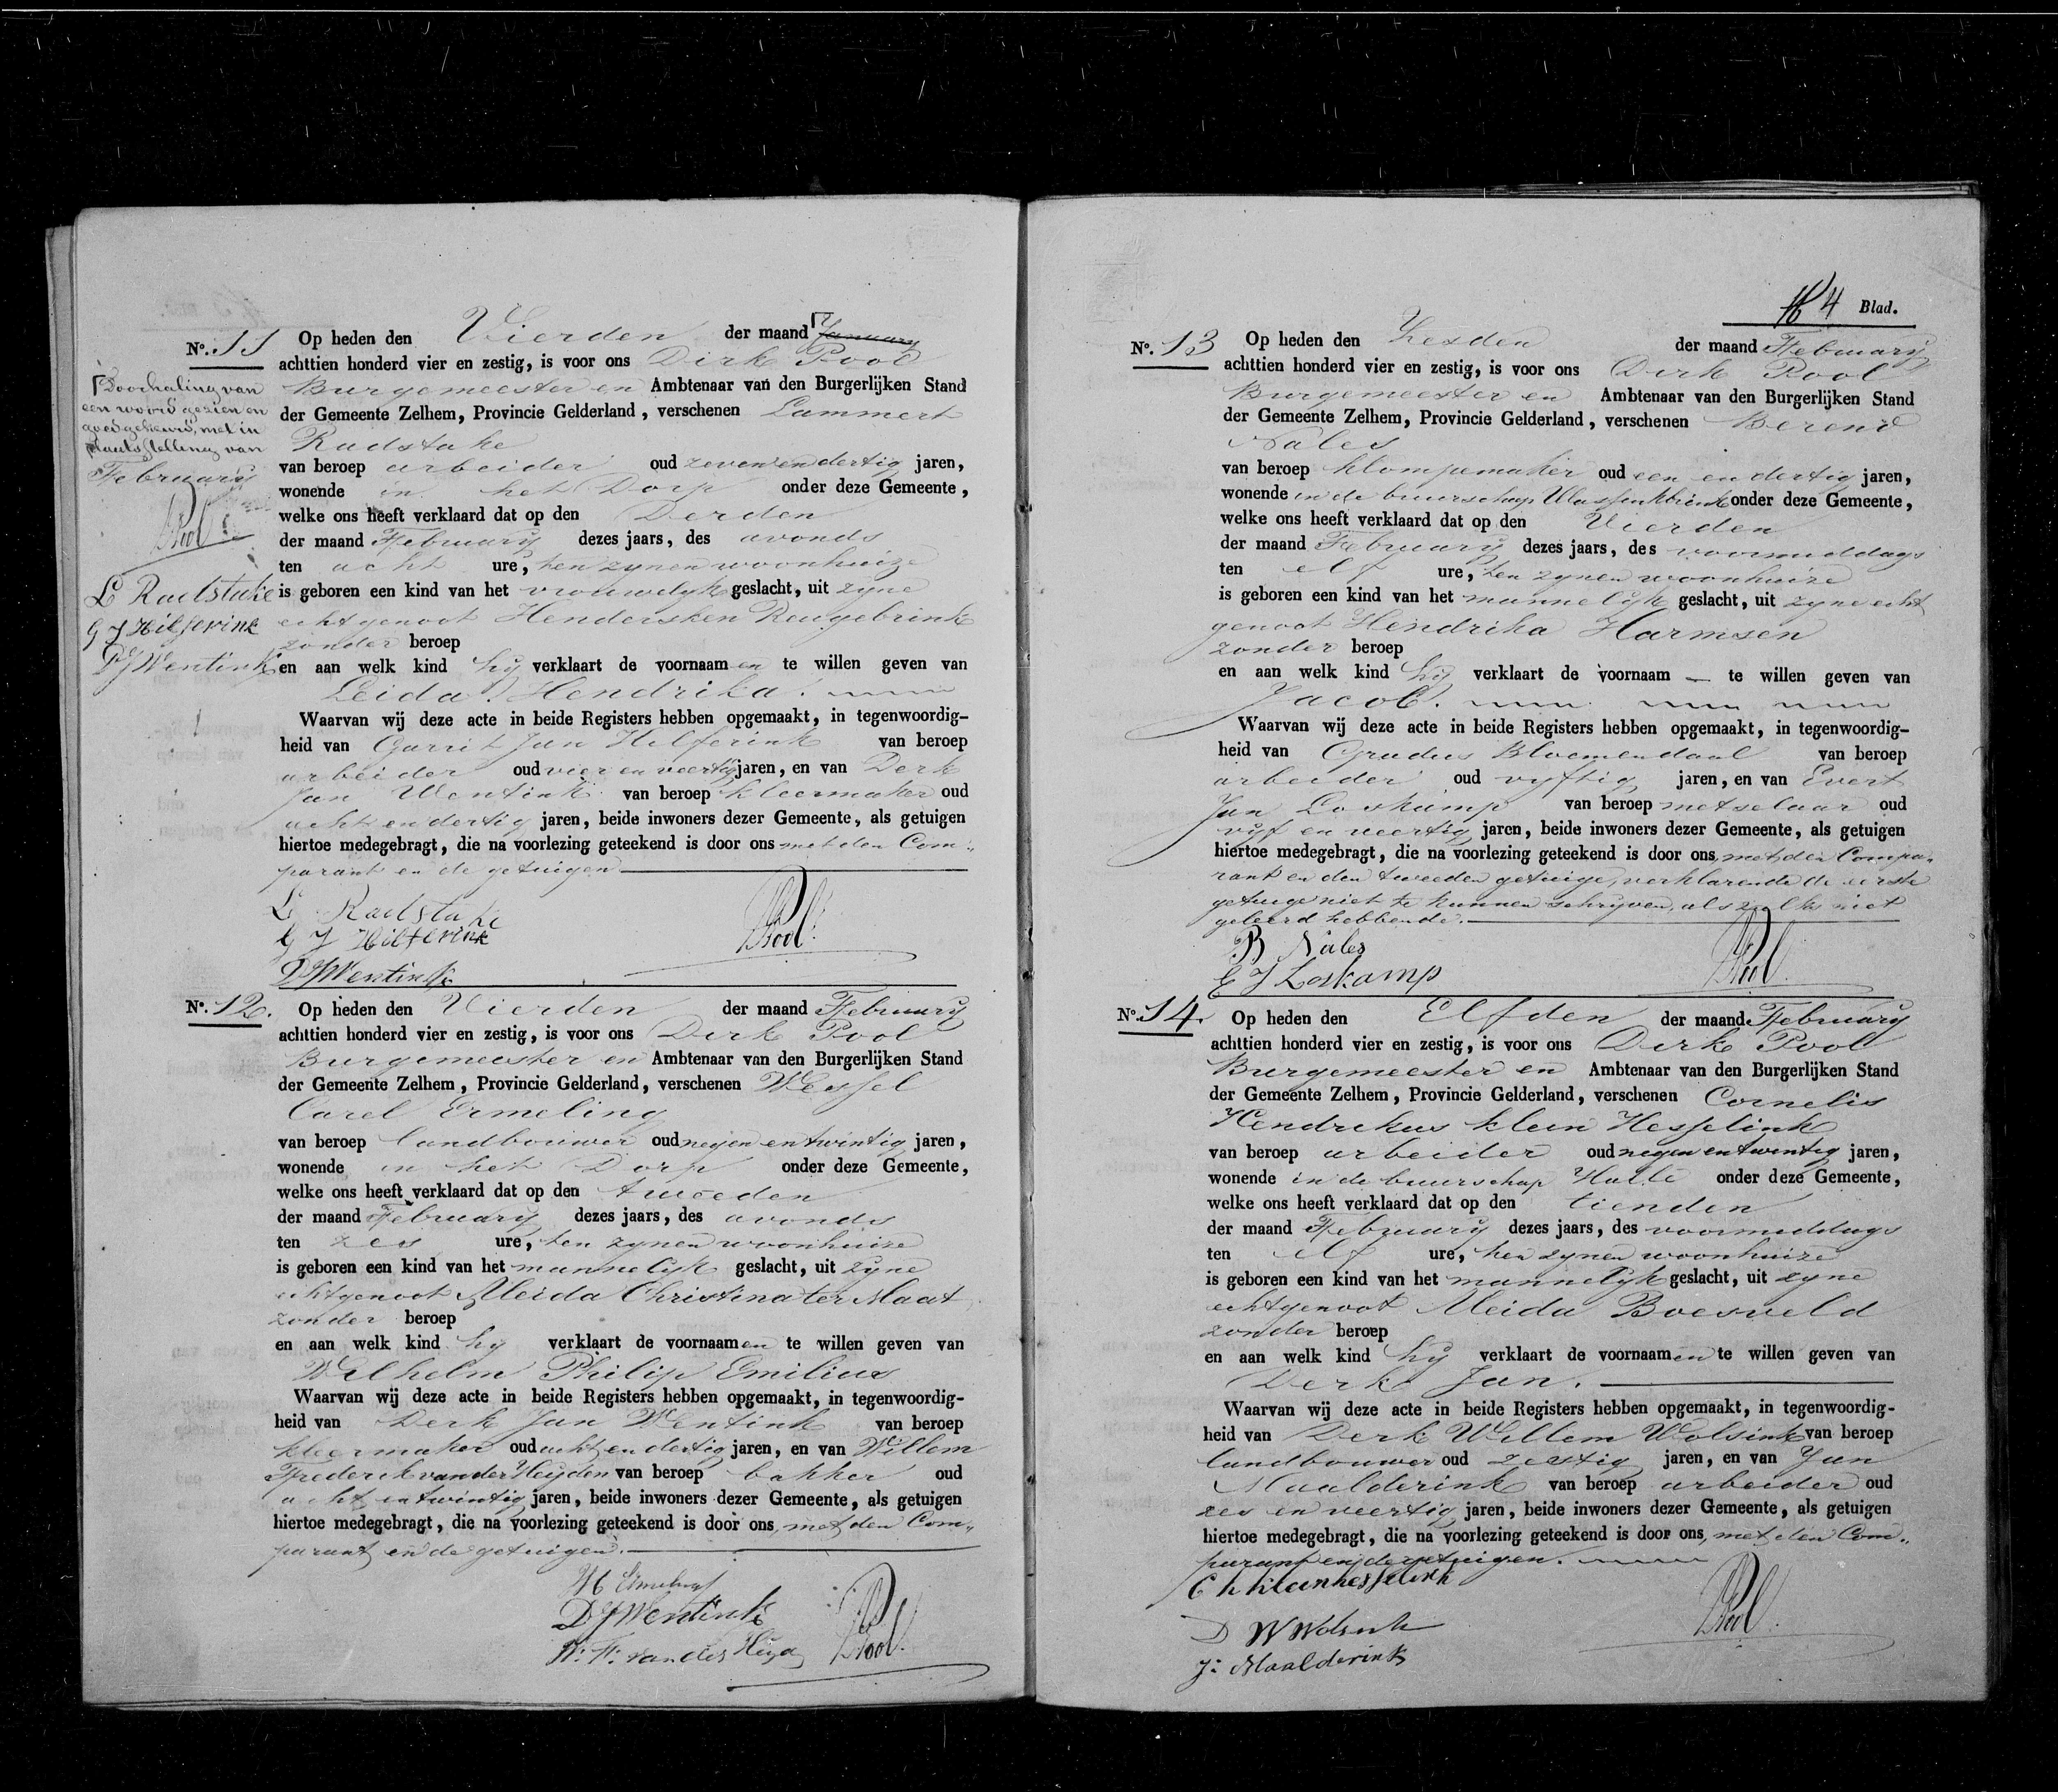 No. 11 Op heden den Vierden der maand ⌈January
achttien honderd vier en zestig, is voor ons Dirk Pool
Burgemeester en Ambtenaar van den Burgerlijken Stand
der Gemeente Zelhem, Provincie Gelderland, verschenen Lammert
Radstake
van beroep arbeider oud zeven en dertig jaren,
wonende in het Dorp onder deze Gemeente,
welke ons heeft verklaard dat op den Derden
der maand February dezes jaars, des avonds
ten acht ure, ten zynen woonhuize
is geboren een kind van het vrouwelyk geslacht, uit zyne
echtgenoot Hendersken Reugebrink
zonder beroep
en aan welk kind hy verklaart de voornaamen te willen geven van
Leida Hendrika.
Waarvan wij deze acte in beide Registers hebben opgemaakt, in tegenwoordig-
heid van Garrit Jan Hilferink van beroep
arbeider oud vier en veertig jaren, en van Derk
Jan Wentink van beroep kleermaker oud
acht en dertig jaren, beide inwoners dezer Gemeente, als getuigen
hiertoe medegebragt, die na voorlezing geteekend is door ons met den Com-
parant en de getuigen
L Radstake
G J Hilferink
DJ Wentink
Pool
⌈Doorhaling van
een woord gezien en
goedgekeurd, met in
plaatsstelling van
February
Pool
L Radstake
G J Hilferink
DJ Wentink
No. 12. Op heden den Vierden der maand February
achttien honderd vier en zestig, is voor ons Derk Pool
Burgemeester en Ambtenaar van den Burgerlijken Stand
der Gemeente Zelhem, Provincie Gelderland, verschenen Wessel
Carel Ermeling
van beroep landbouwer oud negen en twintig jaren,
wonende in het Dorp onder deze Gemeente,
welke ons heeft verklaard dat op den tweeden
der maand February dezes jaars, des avonds
ten zes ure, ten zynen woonhuize
is geboren een kind van het mannelyk geslacht, uit zyne
echtgenoot Aleida Christina ter Maat
zonder beroep
en aan welk kind hy verklaart de voornaamen te willen geven van
Wilhelm Philip Emilius
Waarvan wij deze acte in beide Registers hebben opgemaakt, in tegenwoordig-
heid van Derk Jan Wentink van beroep
kleermaker oud acht en dertig jaren, en van Willem
Frederik van der Heyden van beroep bakker oud
acht en twintig jaren, beide inwoners dezer Gemeente, als getuigen
hiertoe medegebragt, die na voorlezing geteekend is door ons, met den Com-
parant en de getuigen.
DJ Wentink
W. F. van der Heyd
Pool.
4 Blad.
No. 13 Op heden den Zesden der maand February
achttien honderd vier en zestig, is voor ons Derk Pool
Burgemeester en Ambtenaar van den Burgerlijken Stand
der Gemeente Zelhem, Provincie Gelderland, verschenen Berend
Nales
van beroep klompemaker oud een en dertig jaren,
wonende in de buurschap Wassenkbrink onder deze Gemeente,
welke ons heeft verklaard dat op den Vierden
der maand February dezes jaars, des voormiddags
ten elf ure, ten zynen woonhuize
is geboren een kind van het mannelyk geslacht, uit zyne echt
genoot Hendrika Harmsen
zonder beroep
en aan welk kind hij verklaart de voornaam — te willen geven van
Jacob.
Waarvan wij deze acte in beide Registers hebben opgemaakt, in tegenwoordig-
heid van Gradus Bloemendaal van beroep
arbeider oud vyftig jaren, en van Evert
Jan Loskamp van beroep metselaar oud
vyf en veertig jaren, beide inwoners dezer Gemeente, als getuigen
hiertoe medegebragt, die na voorlezing geteekend is door ons, met den Compa-
rant en den tweeden getuige, verklarende de eerste
getuige niet te kunnen schryven, als zulks niet
geleerd hebbende.
B Nales
E J Loskamp
Pool
No. 14. Op heden den Elfden der maand February
achttien honderd vier en zestig, is voor ons Derk Pool
Burgemeester en Ambtenaar van den Burgerlijken Stand
der Gemeente Zelhem, Provincie Gelderland, verschenen Cornelis
Hendrikus klein Hesselink
van beroep arbeider oud negen en twintig jaren,
wonende in de buurschap Halle onder deze Gemeente,
welke ons heeft verklaard dat op den tienden
der maand February dezes jaars, des voormiddags
ten elf ure, ten zynen woonhuize
is geboren een kind van het mannelyk geslacht, uit zyne
echtgenoot Aleida Boesveld
zonder beroep
en aan welk kind hij verklaart de voornaamen te willen geven van
Derk Jan.
Waarvan wij deze acte in beide Registers hebben opgemaakt, in tegenwoordig-
heid van Derk Willem Wolsink van beroep
landbouwer oud zestig jaren, en van Jan
Maalderink van beroep arbeider oud
zes en veertig jaren, beide inwoners dezer Gemeente, als getuigen
hiertoe medegebragt, die na voorlezing geteekend is door ons, met den Com-
parant en de getuigen.
C h kleinhesselink
D W Wolsink
J: Maalderink
Pool.